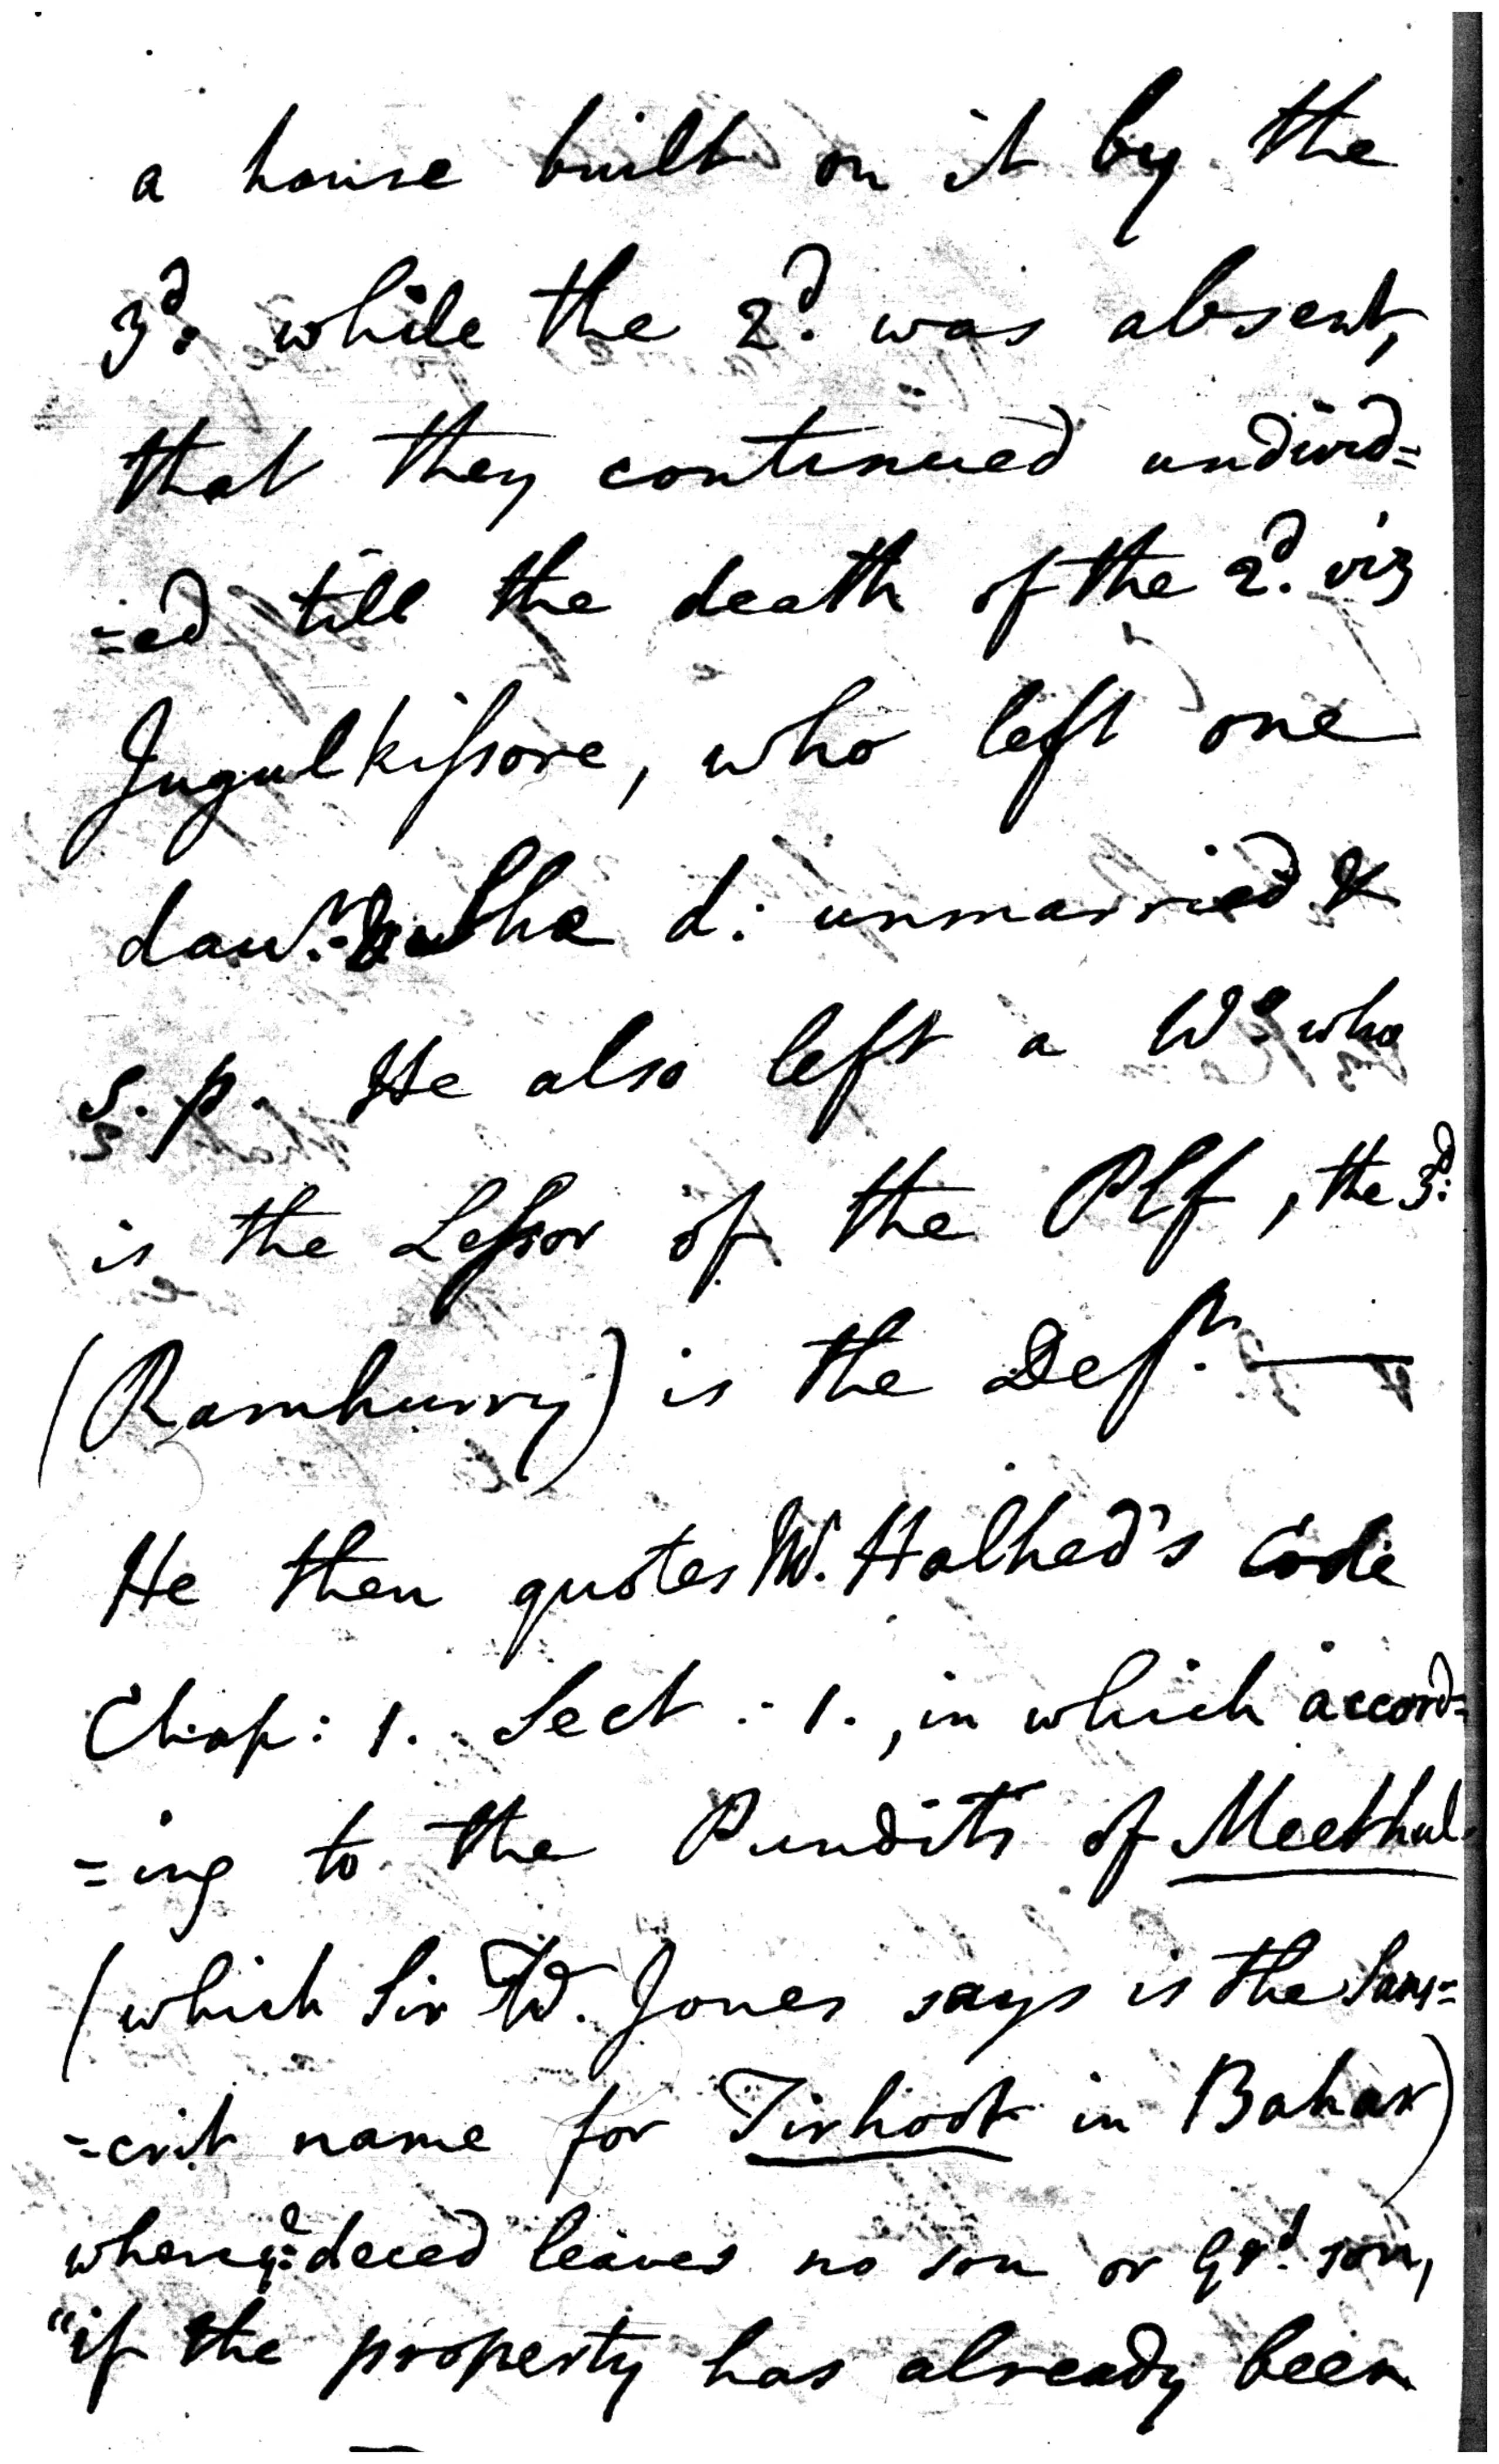 a house built on it by the
3d. while the 2d. was absent,
that they continued undivid=
=ed till the death of the 2d. viz
Jugulkissore, who left one
dawr. she d: unmarried &
s. p. He also left a Wo who
is the Lessor of the Plf, the 3d.
(Ramhurry) is the Deft. —
He then quotes Mr. Halhed's Code
Chap: 1. Sect: 1., in which accord=
=ing to the Pundits of Meethul
(which Sir W. Jones says is the Sans=
=crit name for Tirhoot in Bahar)
when ye deced leaves no son or Grd. son,
"if the property has already been